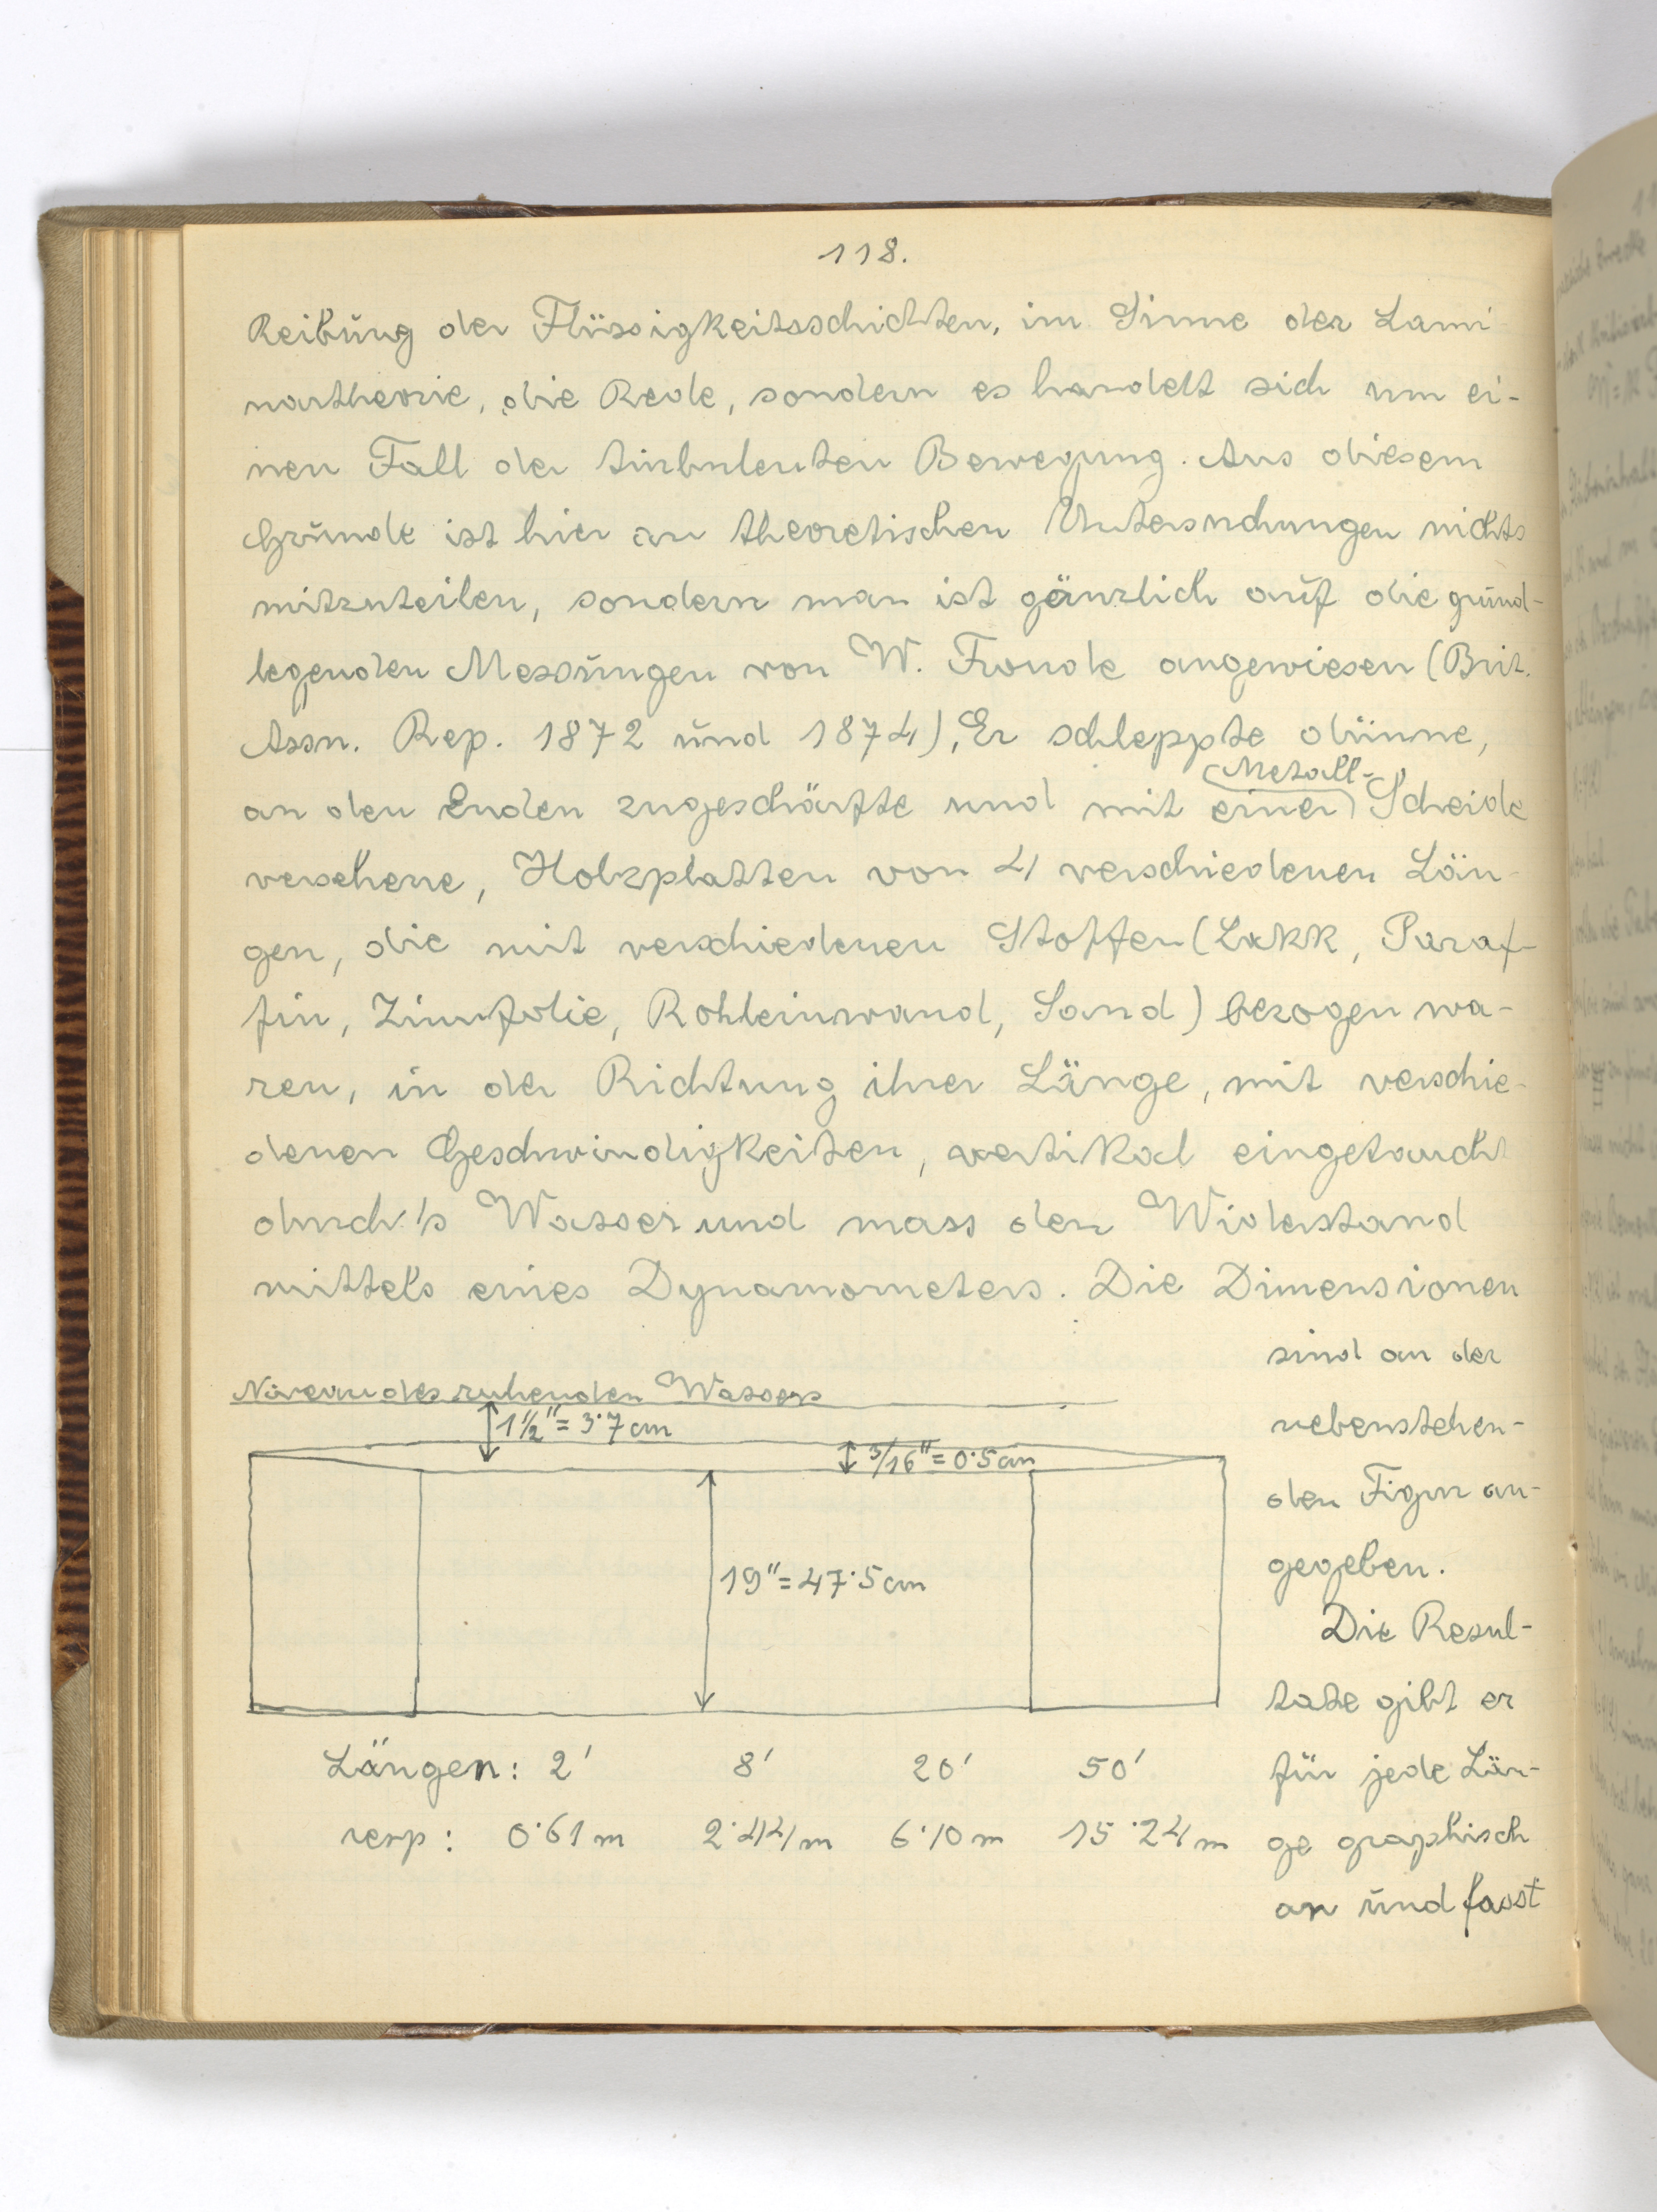 118.
Reibung der Flüssigkeitsschichten, im Sinne der Lami-
nartheorie, die Rede, sondern es handelt sich um ei-
nen Fall der turbulenten Bewegung. Aus diesem
Grunde ist hier an theoretischen Untersuchungen nichts
mitzuteilen, sondern man ist gänzlich auf die grund-
legenden Messungen von W. Froude angewiesen (Brit.
Assn. Rep. 1872 und 1874), Er schleppte dünne,
Metall-
an den Enden zugeschärfte und mit einer Scheide
versehene, Holzplatten von 4 verschiedenen Län-
gen, die mit verschiedenen Stoffen (Lakk, Paraf-
fin, Zinnfolie, Rohleinwand, Sand) bezogen wa-
ren, in der Richtung ihrer Länge, mit verschie-
denen Geschwindigkeiten, vertikal eingetaucht
durch's Wasser und mass den Widerstand
mittels eines Dynamometers. Die Dimensionen
sind an der
nebenstehen-
den Figur an-
gegeben.
Die Resul-
tate gibt er
für jede Län-
ge graphisch
an und fasst
Niveau des ruhenden Wassers
1½" = 3·7 cm
3/16" = 0·5 cm
19" = 47·5 cm
Längen: 2' 8' 20' 50'
resp: 0·61 m 2·44 m 6·10 m 15·24 m